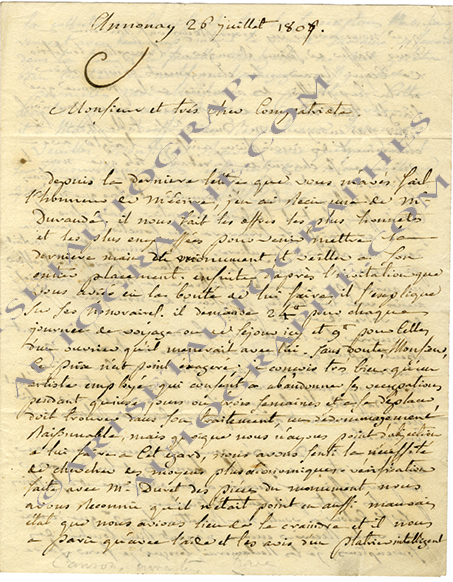 Annonay 26 juillet 1808.
Monsieur et très cher Compatriote.
Depuis la dernière lettre que vous m'avés fait
l'honneur de m'écrire j'en ai reçu une de Mr
Durande, il nous fait les offres les plus honnêtes
et les plus empressées pour venir mettre la
dernière main au monument et veiller à son
entier placement, ensuite d'après l'invitation que
vous avés eu la bonté de lui faire, il s'explique
sur ses honoraires. il demande 24 pour chaque
journée de voyage ou de séjour ici et 9 pour celles
d'un ouvrier qu'il mènerait avec lui. Sans doute Monsieur,
ce prix n'est point exagéré, je conçois très bien qu'un
artiste employé qui consent à abandonner ses occupations
pendant quinze jours ou trois semaines et à se déplacer
doit trouver dans son traitement, un dédommagement
Raisonnable, mais quoique nous n'ayons point d'objection
à lui faire à cet égard, nous avons senti la nécessité
de chercher des moyens plus économiques. vérification
faite avec Mr Duret des pièces du monument nous
avons Reconnu qu'il n'était point en aussi mauvais
état que nous avions lieu de le craindre et il nous
a paru qu'avec l'aide et les avis d'un platrier intelligent
© ARTS ET AUTOGRAPHES
AUTOGRAPHE.COM